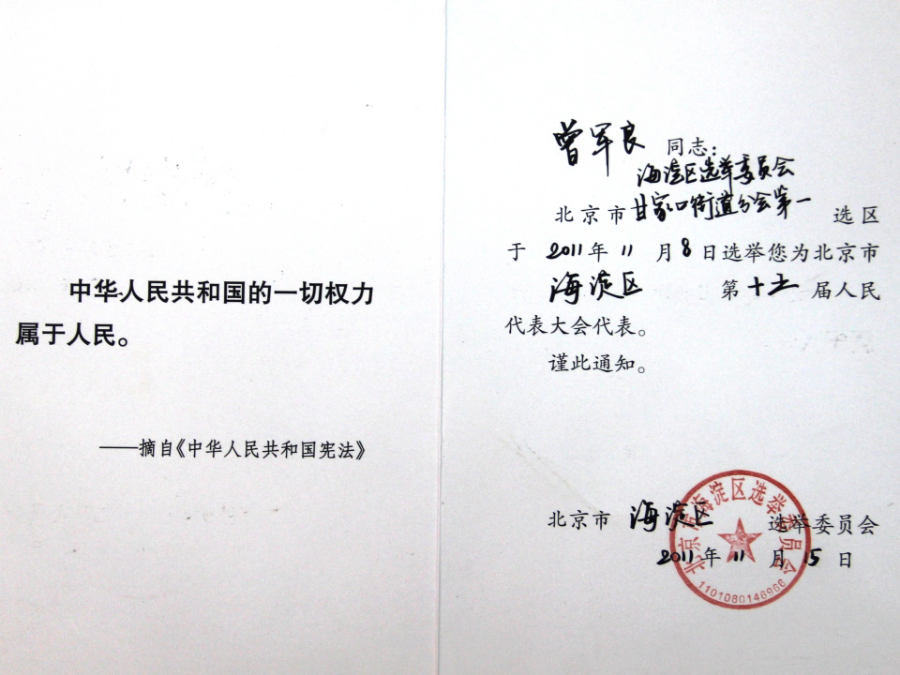 中华人民共和国的一切权力
属于人民。
——摘自《中华人民共和国宪法》
曾军良 同志：
海淀区选举委员会
北京市甘家口街道分会第一 选区
于 2011年11月8日选举您为北京市
海淀区 第十五届人民
代表大会代表。
谨此通知。
北京市 海淀区 选举委员会
2011年11月15日
北京市海淀区选举委员会
1101080146966